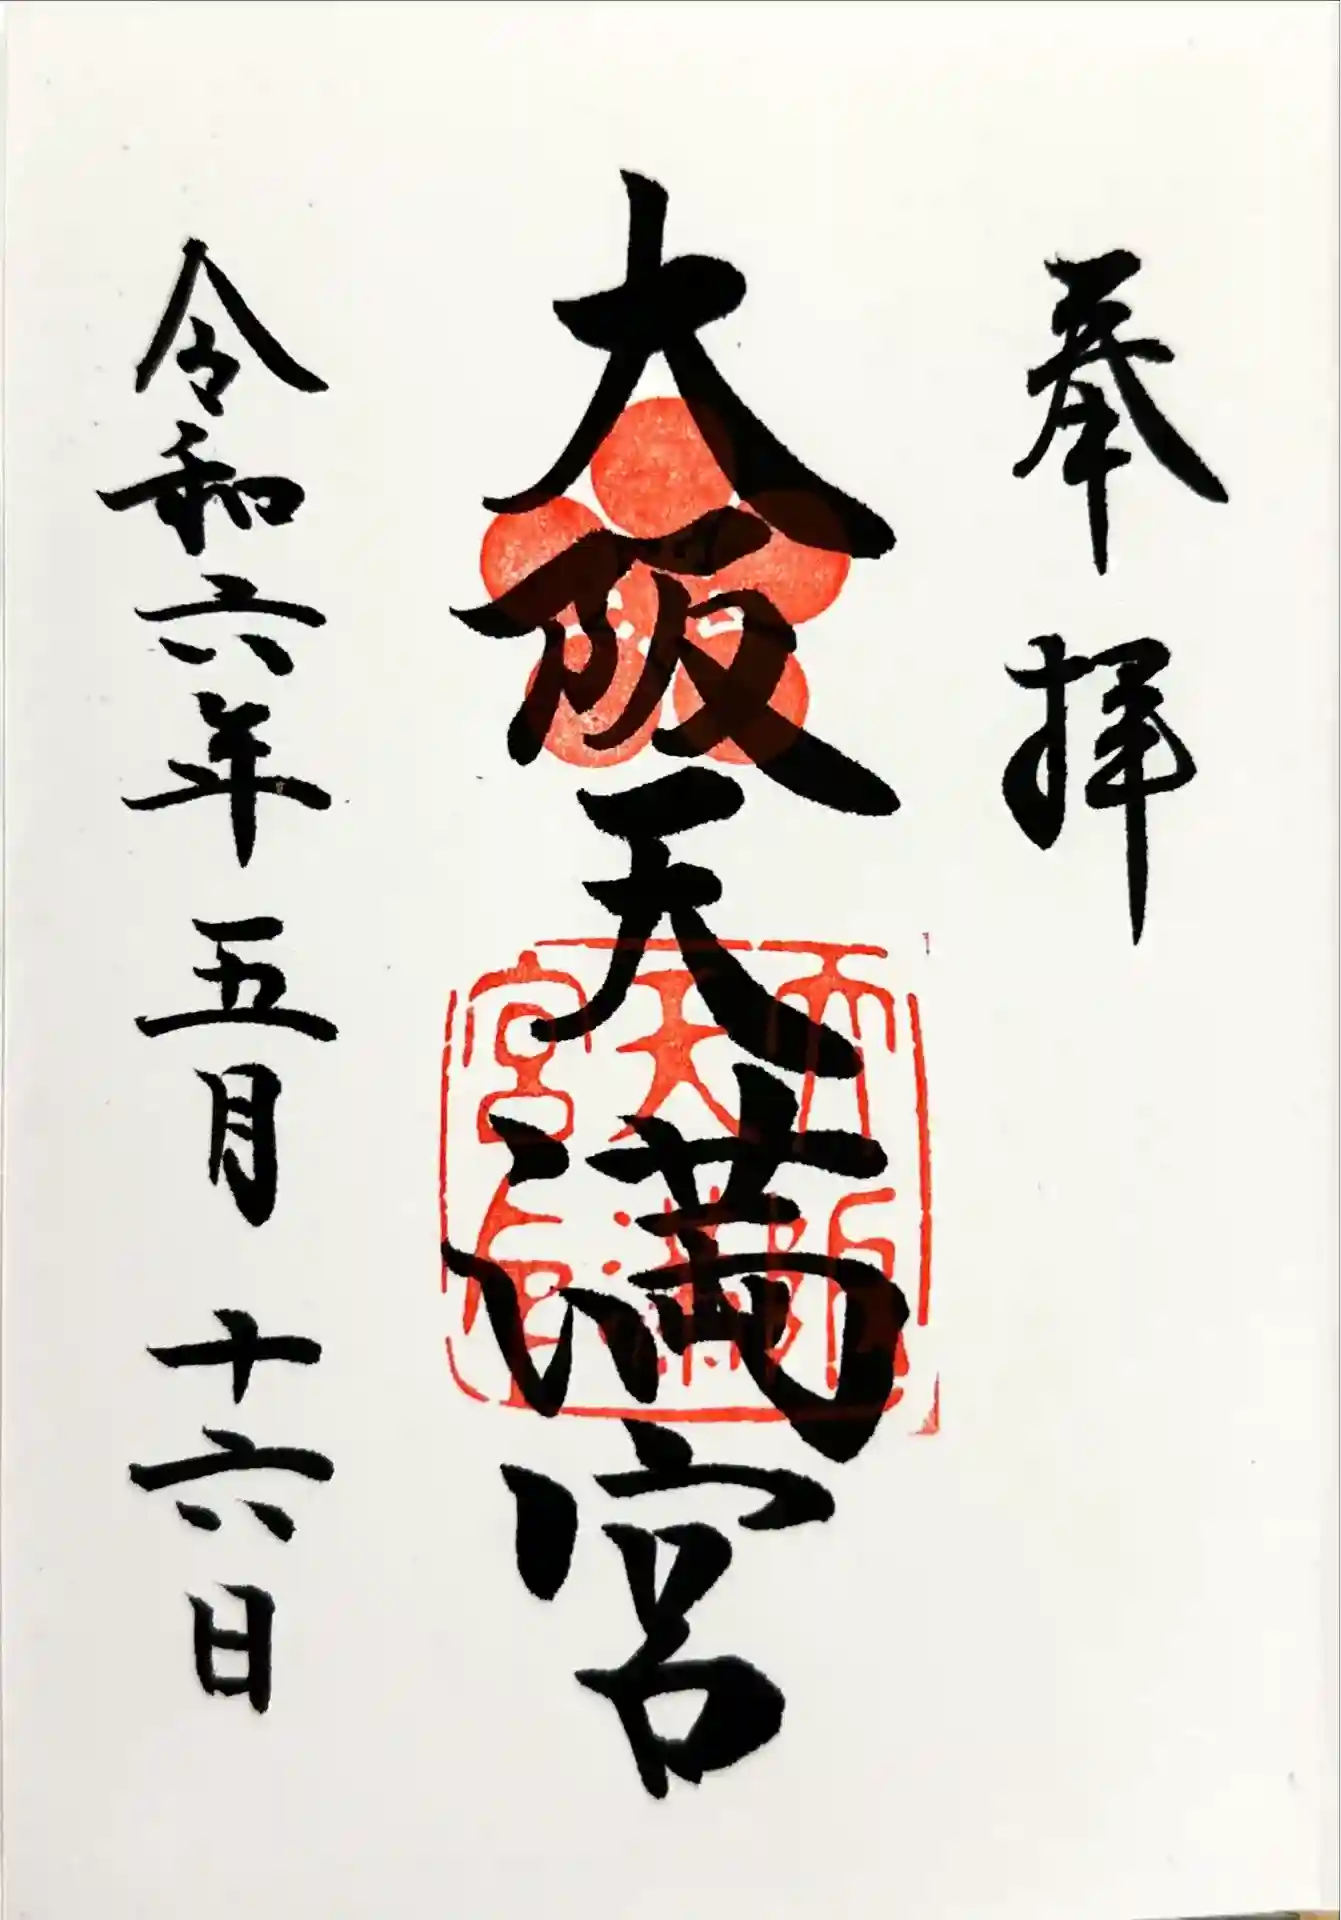 奉拝
大阪天満宮
大阪天満宮印
令和六年五月十六日